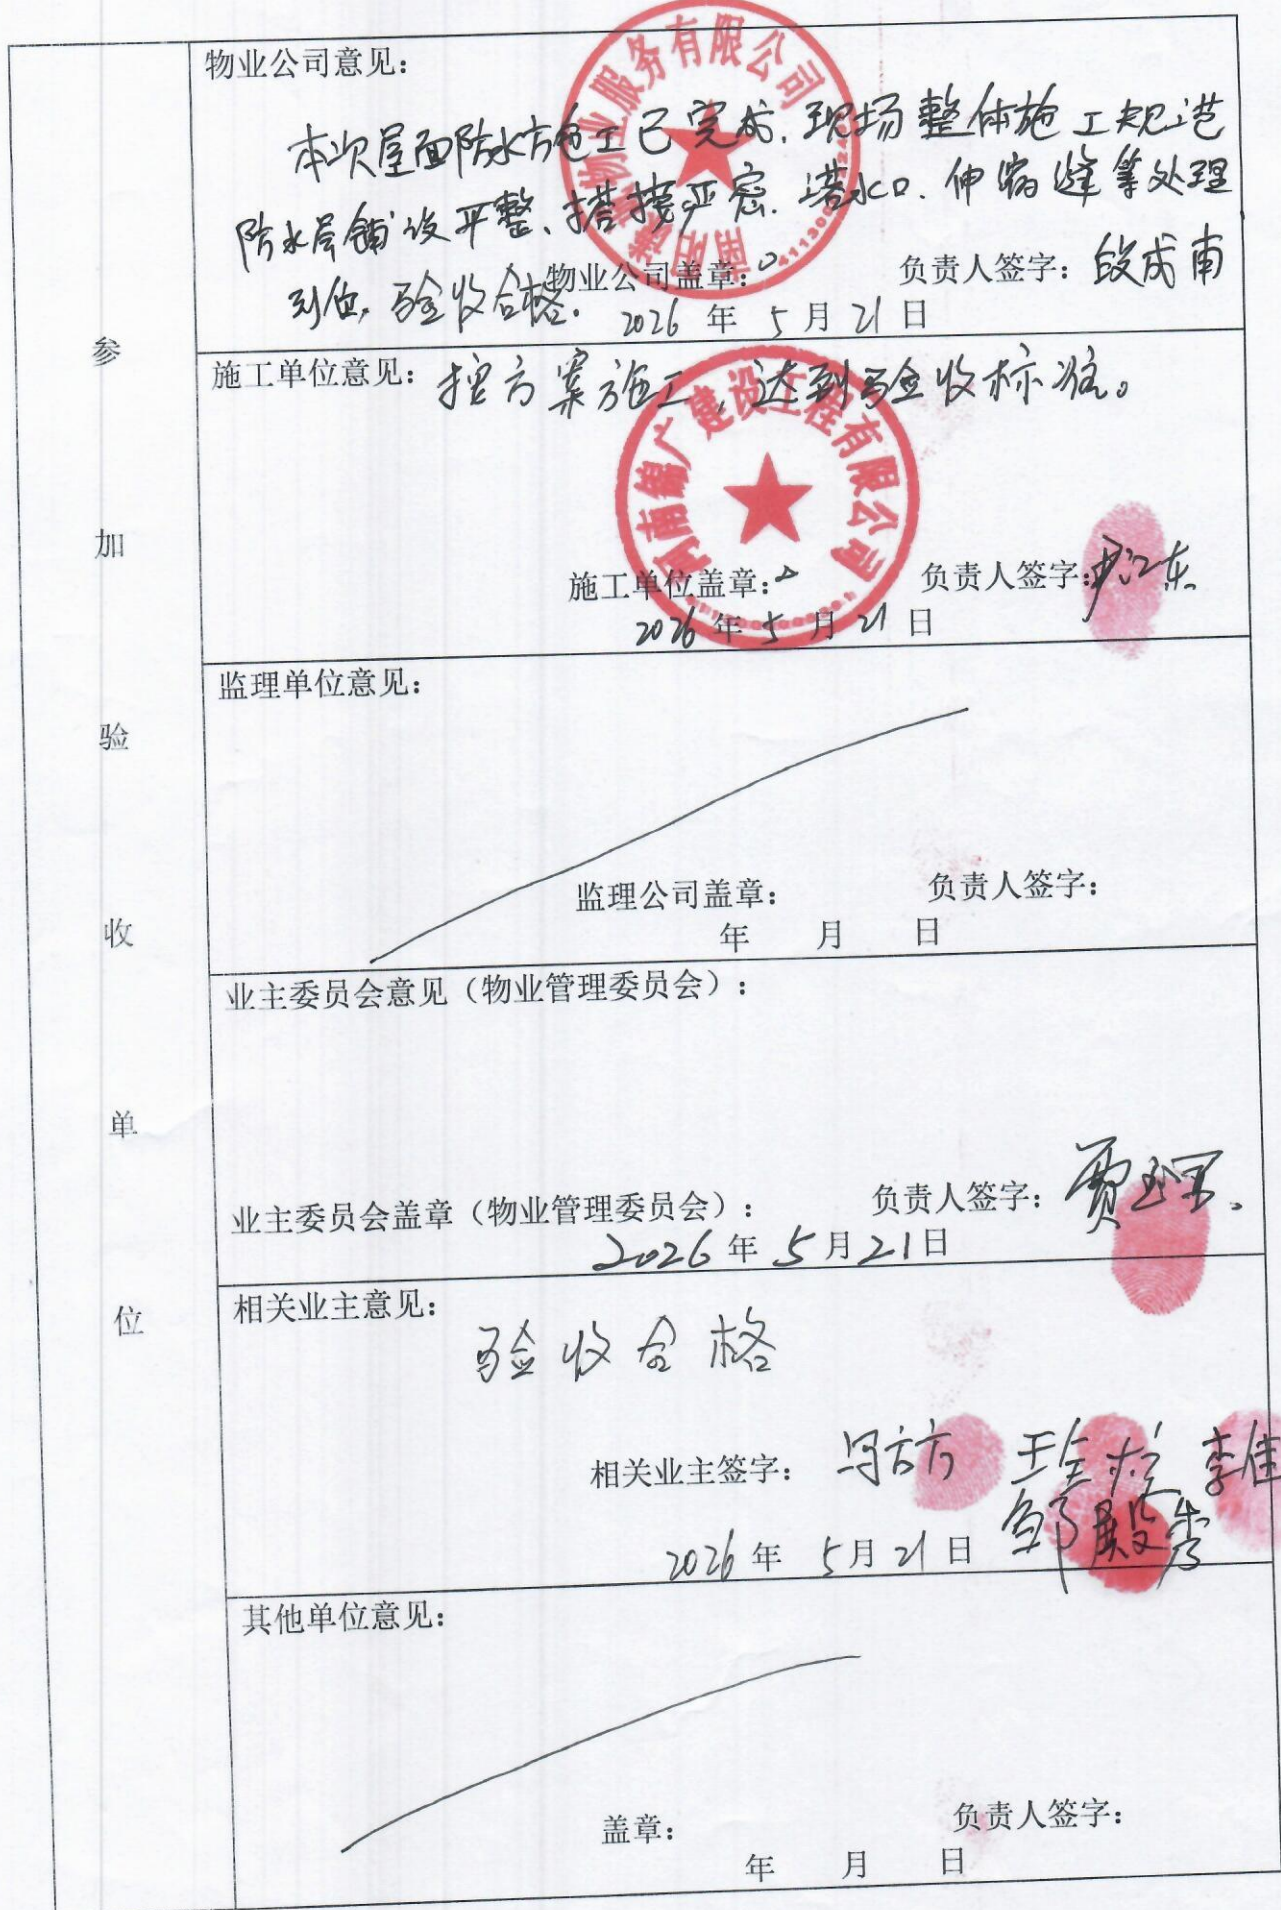 参加验收单位
物业公司意见：
本次屋面防水施工已完成，现场整体施工规范
防水层铺设平整、搭接严密、落水口、伸缩缝等处理
到位，验收合格。
物业服务有限公司
物业公司盖章：
负责人签字：段成南
2026年5月21日
施工单位意见：按方案施工，达到验收标准。
河南锡广建设工程有限公司
施工单位盖章：
负责人签字：
2026年5月21日
监理单位意见：
监理公司盖章：
负责人签字：
年 月 日
业主委员会意见（物业管理委员会）：
业主委员会盖章（物业管理委员会）：
负责人签字：贾
2026年5月21日
相关业主意见：
验收合格
相关业主签字：冯方方 王全 李佳
邹殿秀
2026年5月21日
其他单位意见：
盖章：
负责人签字：
年 月 日